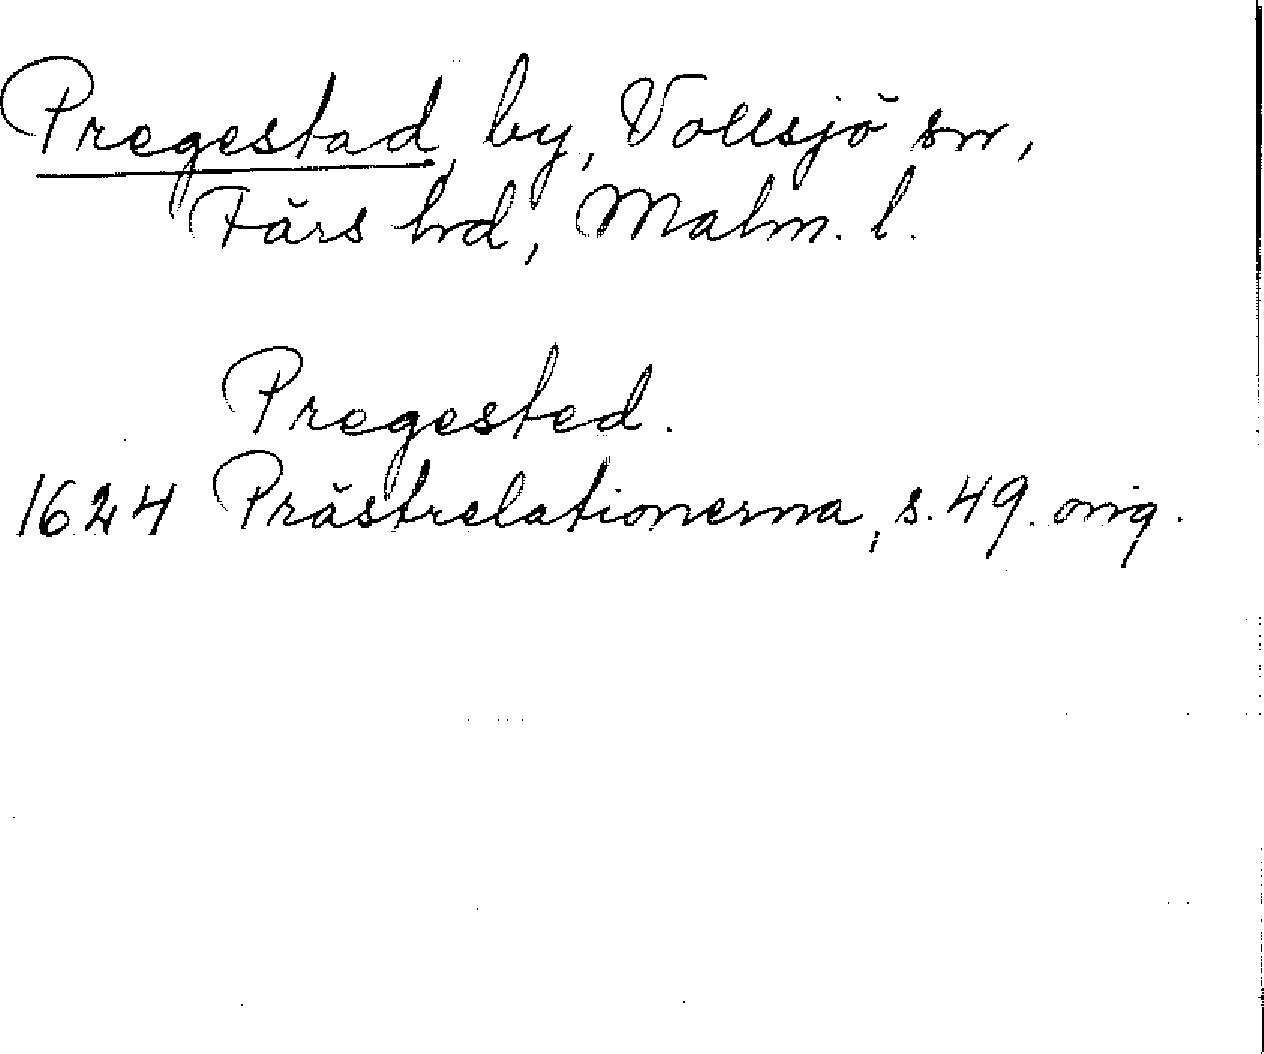 Pregestad, by, Vollsjö sn,
Färs hd, Malm. l.
Pregested.
1624 Prästrelationerna, s. 49. orig.